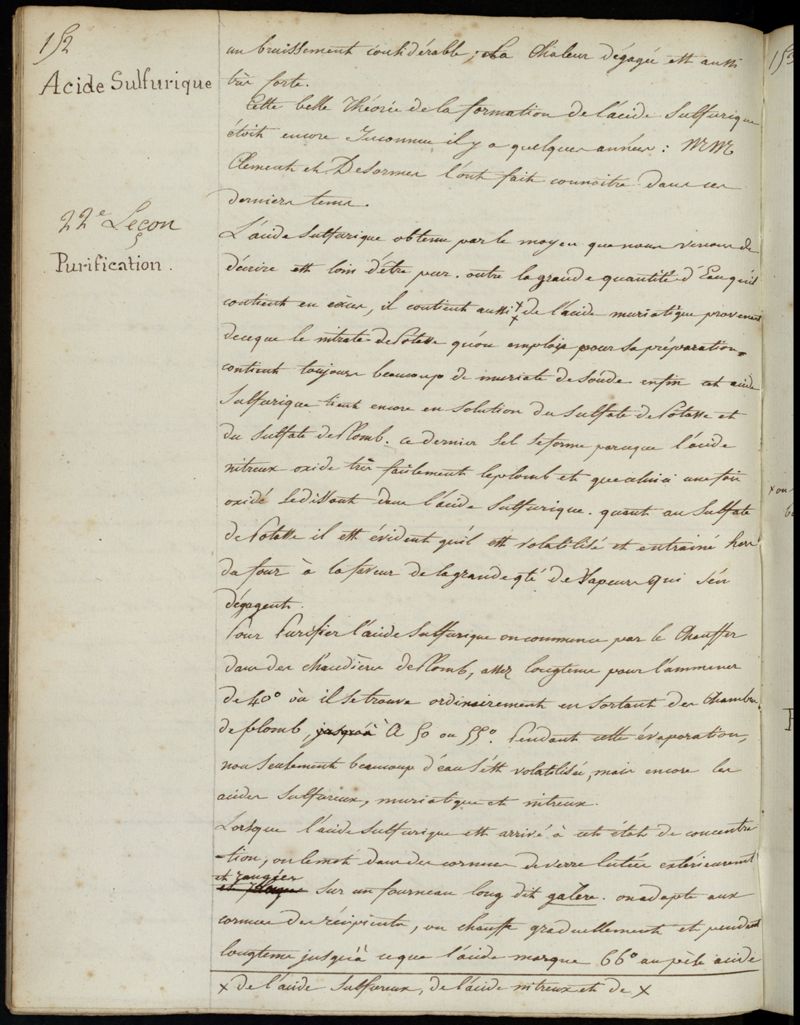 152
Acide Sulfurique
un bruissement considérable ; La Chaleur dégagée est aussi
très forte.
Cette belle Théorie de la formation de l'acide Sulfurique
étoit encore Inconnue il y a quelques années : MM
Clement et Desormes l'ont fait connoitre dans ces
derniers tems.
22e Leçon
Purification.
L'acide Sulfurique obtenu par le moyen que nous venons de
décrire est loin d'être pur. outre la grande quantité d'Eau qu'il
contient en excès, il contient aussi x de l'acide muriatique provenant
de ce que le nitrate de Potasse qu'on emploie pour sa préparation
contient toujours beaucoup de muriate de soude enfin cet acide
Sulfurique tient encore en solution du Sulfate de Potasse et
du Sulfate de Plomb. ce dernier sel se forme parceque l'acide
nitreux oxide très facilement le plomb et que celui ci une fois
oxidé se dissout dans l'acide Sulfurique. quant au Sulfate
de Potasse il est évident qu'il est volatilisé et entrainé hors
du four à la faveur de la grande qté de Vapeurs qui s'en
dégagent.
Pour Purifier l'acide Sulfurique on commence par le Chauffer
dans des chaudières de Plomb, assez longtems pour l'ammener
de 40° où il se trouve ordinairement en sortant des Chambres
de plomb, jusqu'à A 50 ou 55°. Pendant cette évaporation,
non seulement beaucoup d'eau s'est volatilisée, mais encore les
acides Sulfureux, muriatique et nitreux.
Lorsque l'acide Sulfurique est arrivé à cet état de concentra
-tion, on le met dans des cornues de verre lutées extérieurement
et rangées
sur un fourneau long dit galere. on adapte aux
cornues des récipients, on chauffe graduellement et pendant
longtems jusqu'à ce que l'acide marque 66° au pèse acide
x de l'acide Sulfureux, de l'acide nitreux et de x